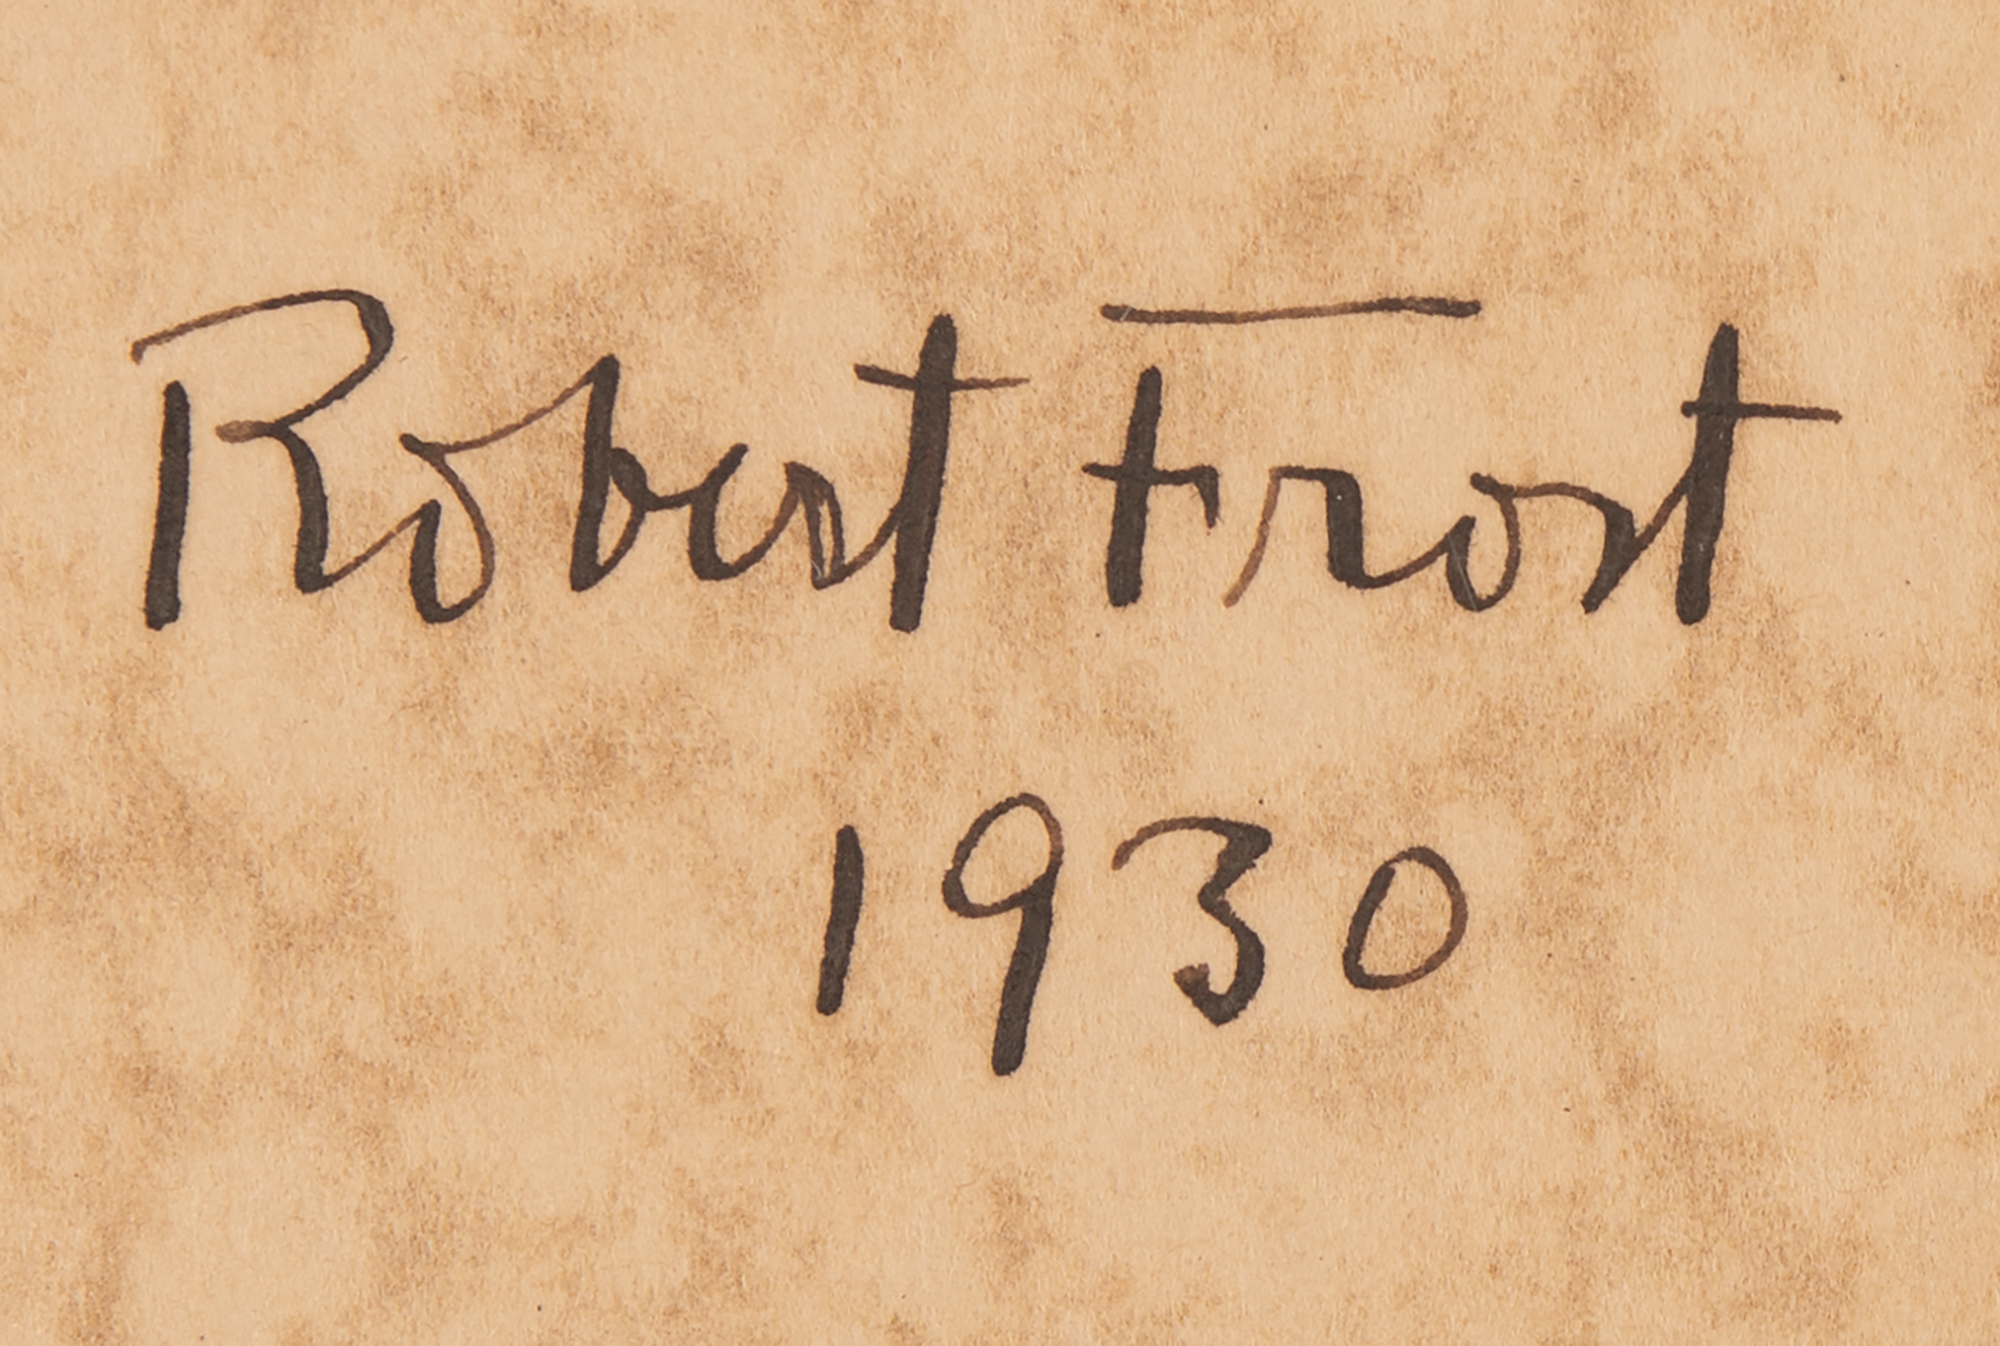 Robert Frost
1930